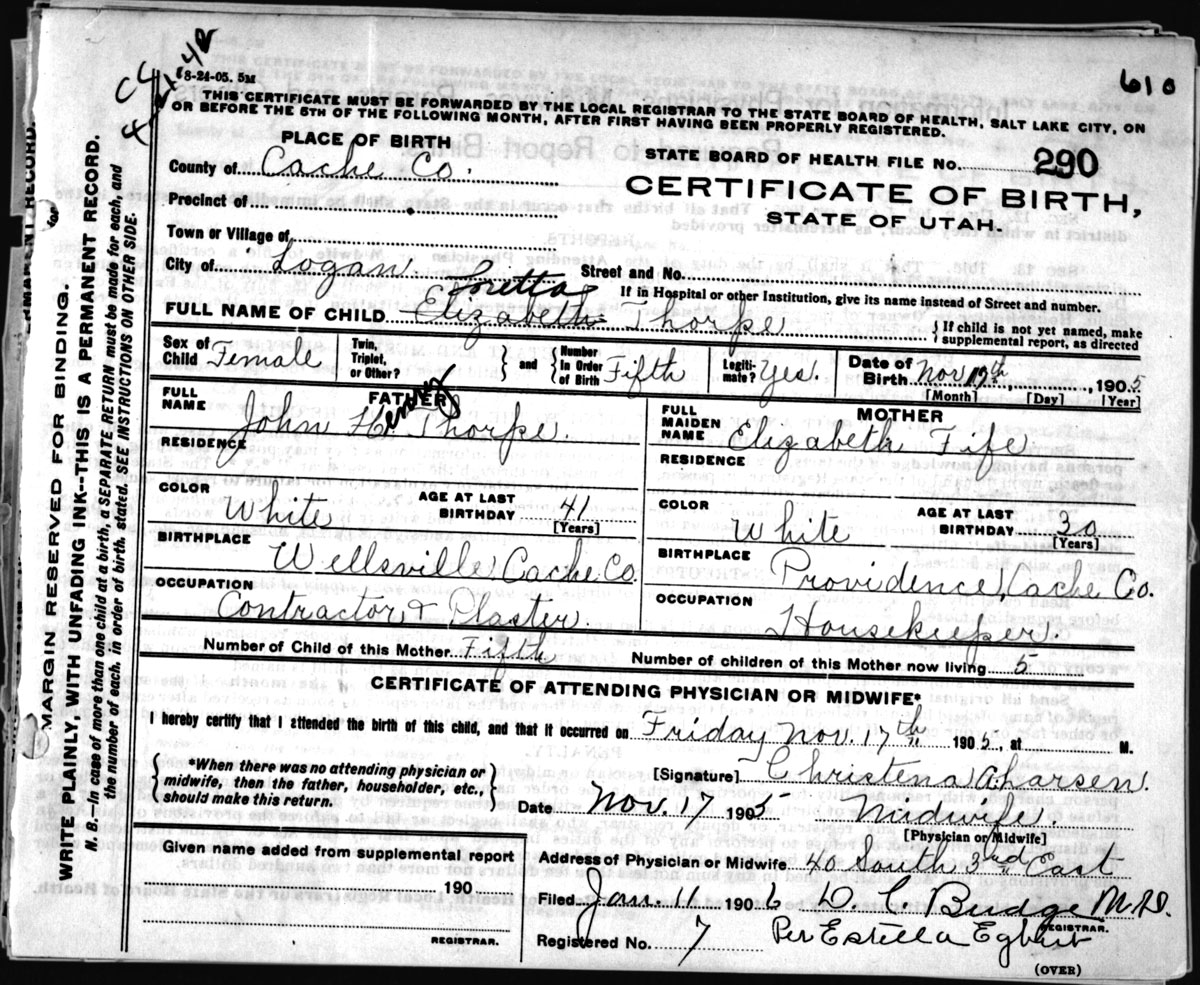 C4
8-24-05. 5M
610
THIS CERTIFICATE MUST BE FORWARDED BY THE LOCAL REGISTRAR TO THE STATE BOARD OF HEALTH, SALT LAKE CITY, ON
OR BEFORE THE 5TH OF THE FOLLOWING MONTH, AFTER FIRST HAVING BEEN PROPERLY REGISTERED.
PLACE OF BIRTH
STATE BOARD OF HEALTH FILE No. 290
County of Cache Co.
CERTIFICATE OF BIRTH,
Precinct of
STATE OF UTAH.
Town or Village of
City of Logan. Street and No.
If in Hospital or other Institution, give its name instead of Street and number.
Loretta
FULL NAME OF CHILD Elizabeth Thorpe { If child is not yet named, make supplemental report, as directed
Sex of Child Female Twin, Triplet, or Other? and { Number In Order of Birth Fifth Legiti-mate? Yes. Date of Birth Nov 17th, 1905
[Month] [Day] [Year]
FATHER
MOTHER
FULL NAME John H. Henry Thorpe.
FULL MAIDEN NAME Elizabeth Fife.
RESIDENCE
RESIDENCE
COLOR White AGE AT LAST BIRTHDAY 41 [Years]
COLOR White AGE AT LAST BIRTHDAY 30 [Years]
BIRTHPLACE Wellsville Cache Co.
BIRTHPLACE Providence, Cache Co.
OCCUPATION Contractor & Plaster.
OCCUPATION Housekeeper.
Number of Child of this Mother Fifth Number of children of this Mother now living 5
CERTIFICATE OF ATTENDING PHYSICIAN OR MIDWIFE*
I hereby certify that I attended the birth of this child, and that it occurred on Friday Nov. 17th 1905, at M.
*When there was no attending physician or
midwife, then the father, householder, etc.,
should make this return.
[Signature] Christena
Date Nov. 17 1905 Midwife.
[Physician or Midwife]
Given name added from supplemental report
Address of Physician or Midwife 40 South 3rd East
190
Filed Jan. 16 1906 D. C. Budge M.D.
REGISTRAR.
REGISTRAR.
Registered No. 7 Per Estella Egbert
(OVER)
MARGIN RESERVED FOR BINDING.
WRITE PLAINLY, WITH UNFADING INK--THIS IS A PERMANENT RECORD.
N. B.--In case of more than one child at a birth, a SEPARATE RETURN must be made for each, and
the number of each, in order of birth, stated. SEE INSTRUCTIONS ON OTHER SIDE.